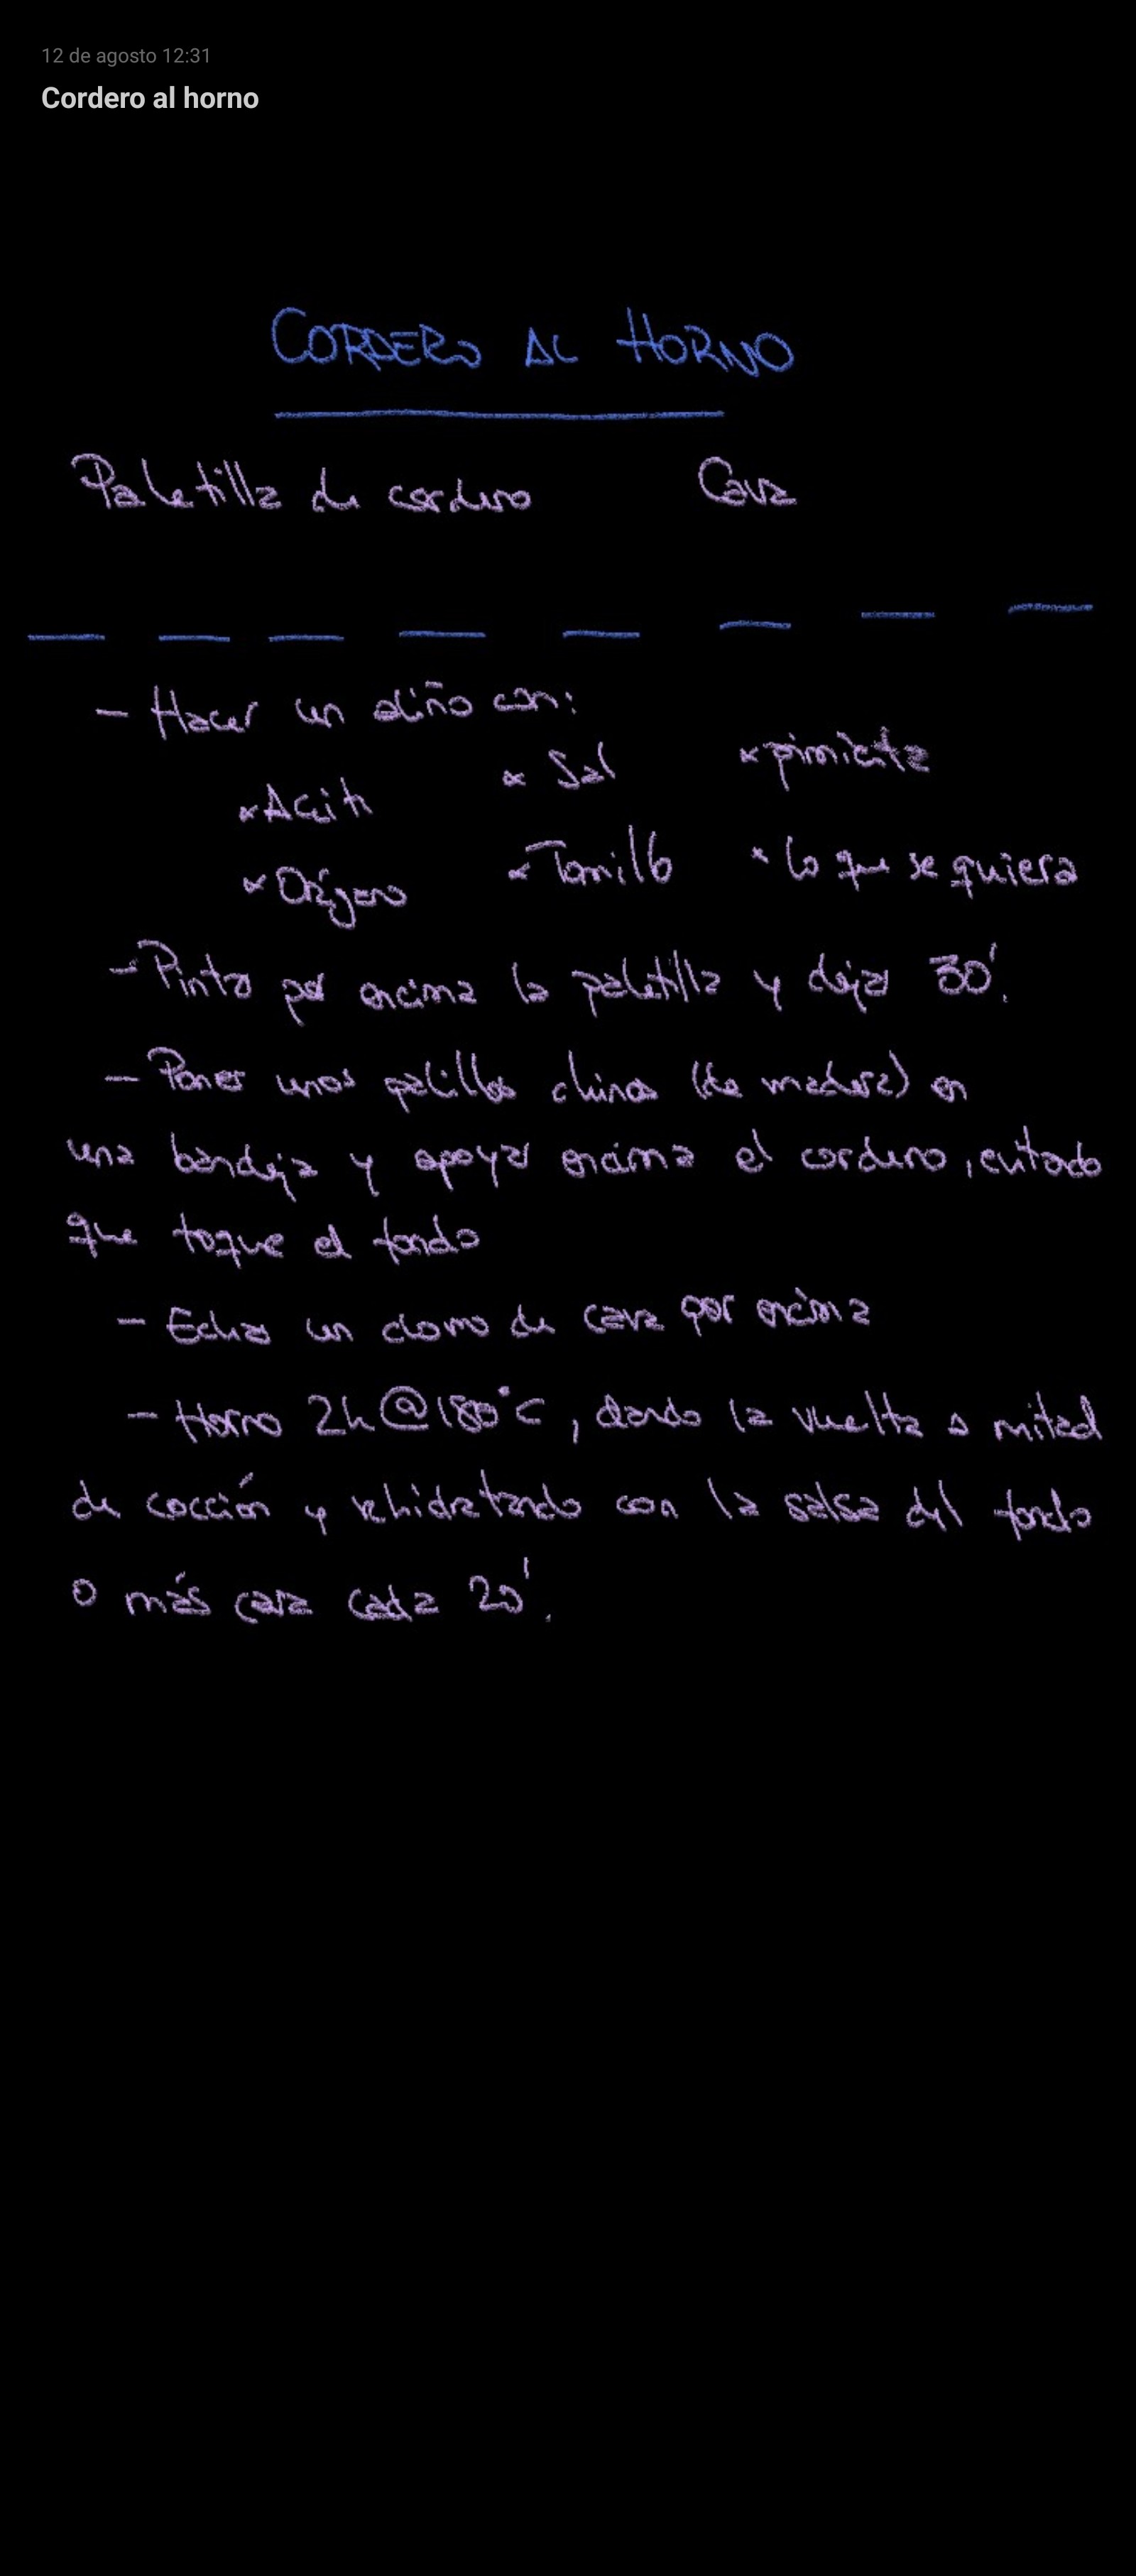 12 de agosto 12:31
Cordero al horno
CORDERO AL HORNO
Paletilla de cordero Cava
- Hacer un aliño con:
* Aceite * Sal * pimienta
* Orégano * Tomillo * lo que se quiera
- Pintar por encima la paletilla y dejar 30'.
- Poner unos palillos chinos (de madera) en
una bandeja y apoyar encima el cordero, evitando
que toque el fondo
- Echar un chorro de cava por encima
- Horno 2h @ 180°C, dando la vuelta a mitad
de cocción y rehidratando con la salsa del fondo
o más cava cada 20'.